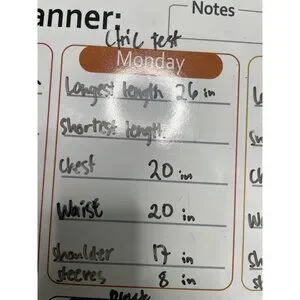 anner:
Notes
Monday
Longest length 26 in
Shortest length
Chest 20 in
Waist 20 in
Shoulder 17 in
Sleeves 8 in